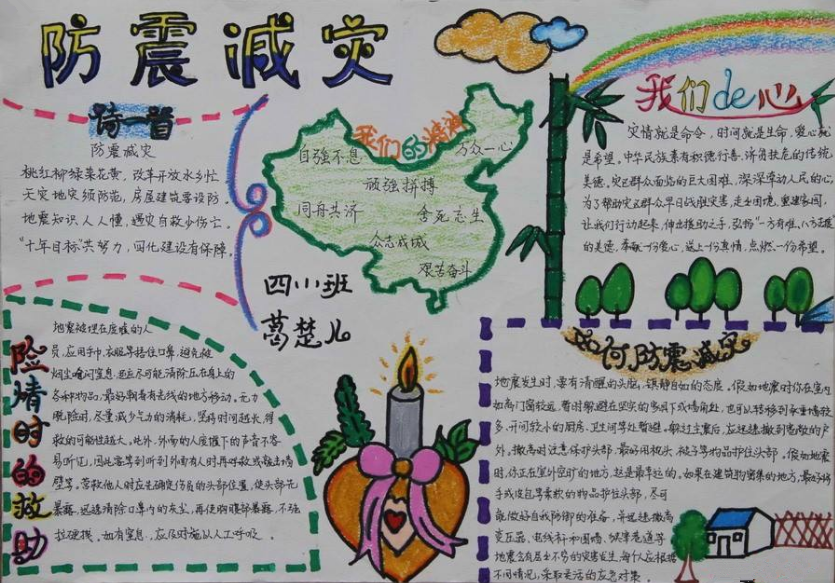 防震减灾
诗一首
防震减灾
桃红柳绿菜花黄，改革开放水乡忙
天灾地灾须防范，房屋建筑要设防。
地震知识人人懂，遇灾自救少伤亡。
"十年目标"共努力，四化建设有保障。
我们的精神
自强不息
万众一心
顽强拼搏
同舟共济
舍死忘生
众志成城
艰苦奋斗
四(1)班
葛楚儿
我们de心
灾情就是命令，时间就是生命，爱心就
是希望。中华民族素有积德行善、济贫扶危的传统
美德，灾区群众面临的巨大困难，深深牵动人民的心，
为了帮助灾区群众早日战胜灾害，走出困境，重建家园，
让我们行动起来，伸出援助之手，弘扬"一方有难，八方支援"
的美德，奉献一份爱心，送上一份真情，点燃一份希望。
险情时的救助
地震被埋在废墟的人
员，应用手巾、衣服等捂住口鼻，避免被
烟尘呛闷窒息，还应尽可能清除压在身上的
各种物品，最好朝着有光线的地方移动，无力
脱险时，尽量减少气力的消耗，坚持时间越长，得
救的可能性越大。此外，外面的人废墟下的声音不容
易听见，因此需等到听到外面有人时再呼救或敲击墙
壁等。营救他人时应先确定伤员的头部位置，使头部先
暴露，迅速清除口鼻内的灰尘，再使胸腹部暴露，不强
拉硬拽，如有窒息，应及时施以人工呼吸。
如何防震减灾
地震发生时，要有清醒的头脑，镇静自如的态度。假如地震时你在室内
如离门窗较远，暂时躲避在坚实的家具下或墙角处，也可以转移到承重墙较
多、开间较小的厨房、卫生间等处暂避。躲过主震后，应迅速撤到宽敞的户
外，撤离时注意保护头部，最好用枕头、被子等物品护住头部。假如地震
时，你正在室外空旷的地方，这是最幸运的。如果在建筑物密集的地方，最好将
手或皮包等柔软的物品护住头部，尽可
能做好自我防御的准备，并迅速撤离
变压器、电线杆和围墙、狭窄巷道等
地震会有层出不穷的灾害发生，每个人应根据
不同情况，采取灵活的应急对策。